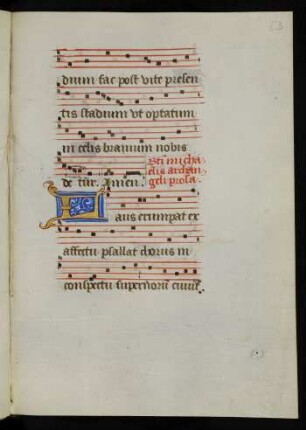 dium fac post vite presen
tis stadium ut optatum
in celis bravium nobis
de tur. Amen.
Sti micha
elis archan
geli prosa
Laus erumpat ex
affectu psallat chorus in
conspectu supernorum civium